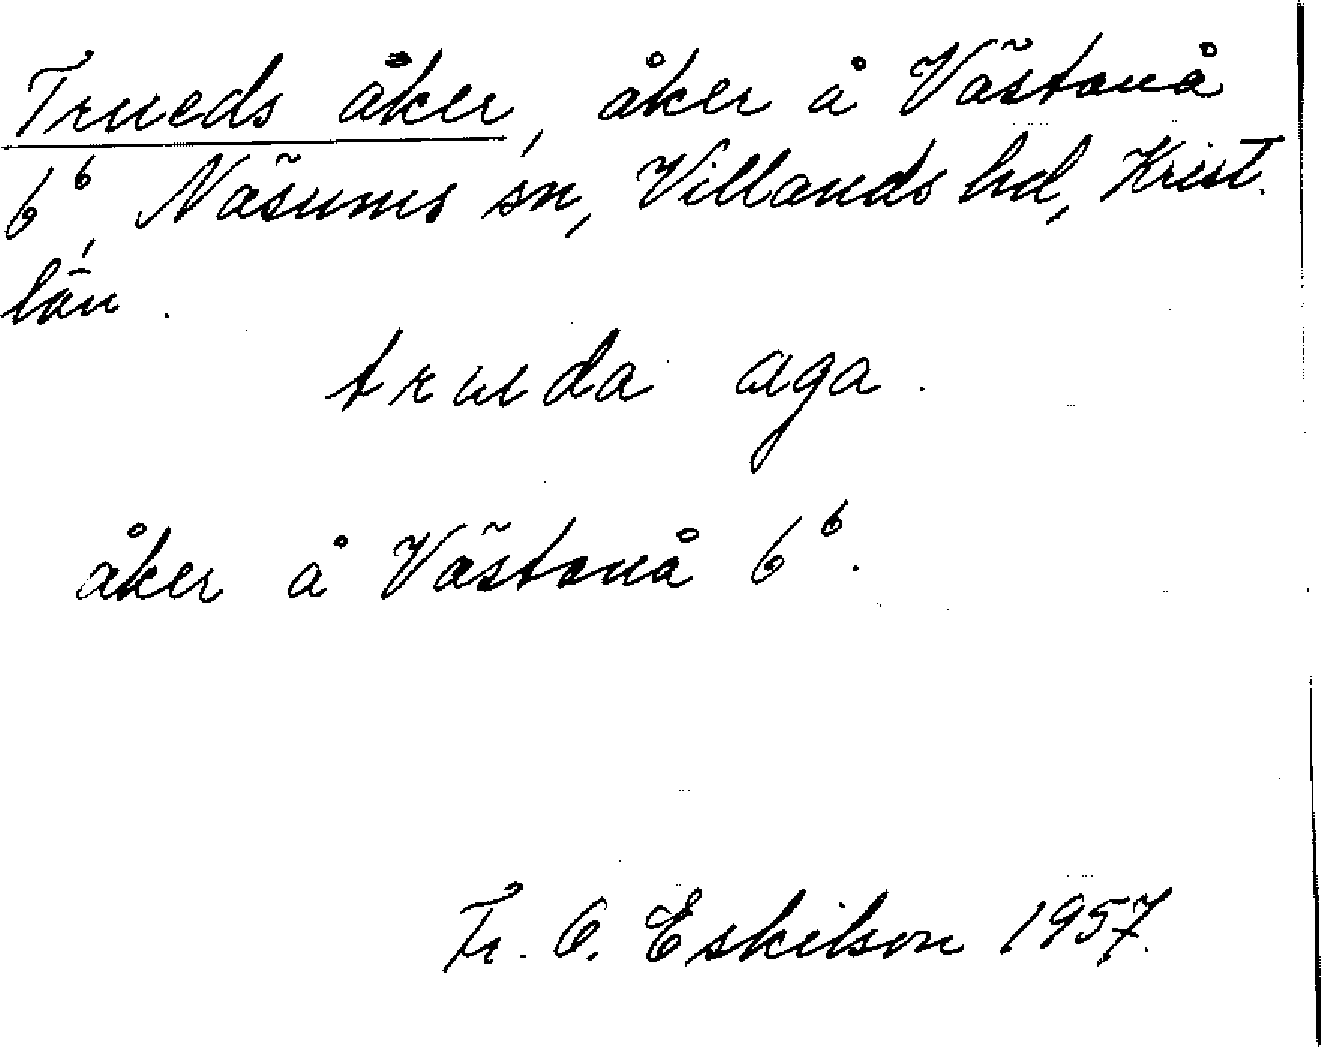 Trueds åker, åker å Västanå
6⁶, Näsums sn, Villands hd, Krist.
län.
truida aga.
åker å Västanå 6⁶.
Fr. O. Eskilson 1957.